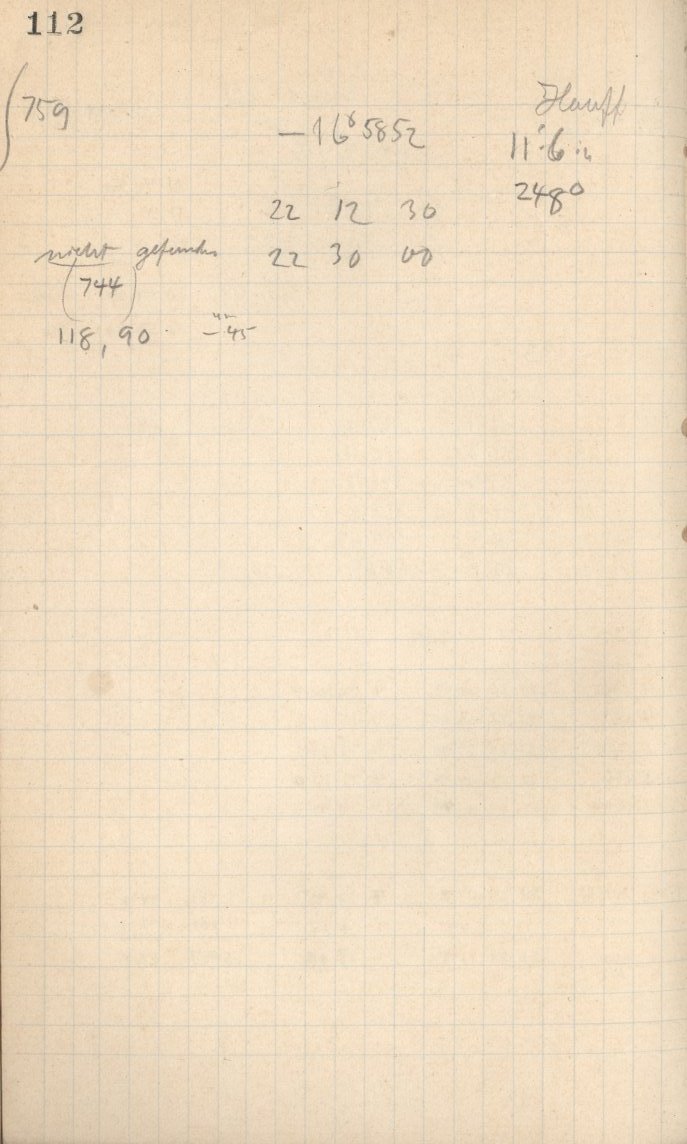 112
759
Hauff
–16° 5852
11 · 6
2480
22 12 30
nicht gefunden 22 30 00
(744)
118,90 –45